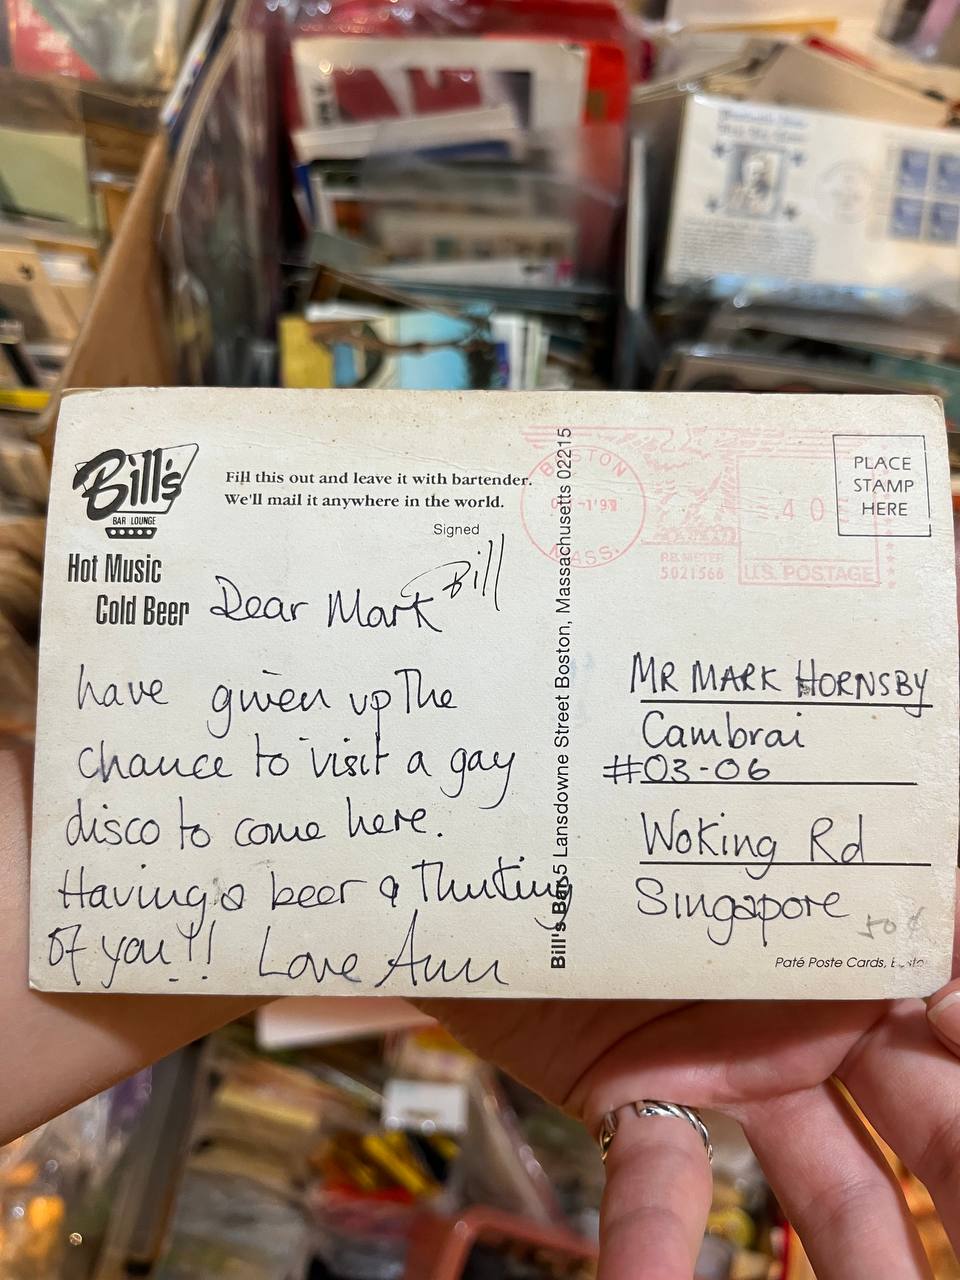 Bill's
BAR LOUNGE
Hot Music
Cold Beer
Fill this out and leave it with bartender.
We'll mail it anywhere in the world.
Signed
Bill
Dear Mark
have given up the
chance to visit a gay
disco to come here.
Having a beer &
of you!! Love Ann
Bill's Bar 5 Lansdowne Street Boston, Massachusetts 02215
BOSTON
MASS.
.40
P.B. METER
5021566
U.S. POSTAGE
PLACE
STAMP
HERE
MR MARK HORNSBY
Cambrai
#03-06
Woking Rd
Singapore
50¢
Paté Poste Cards,